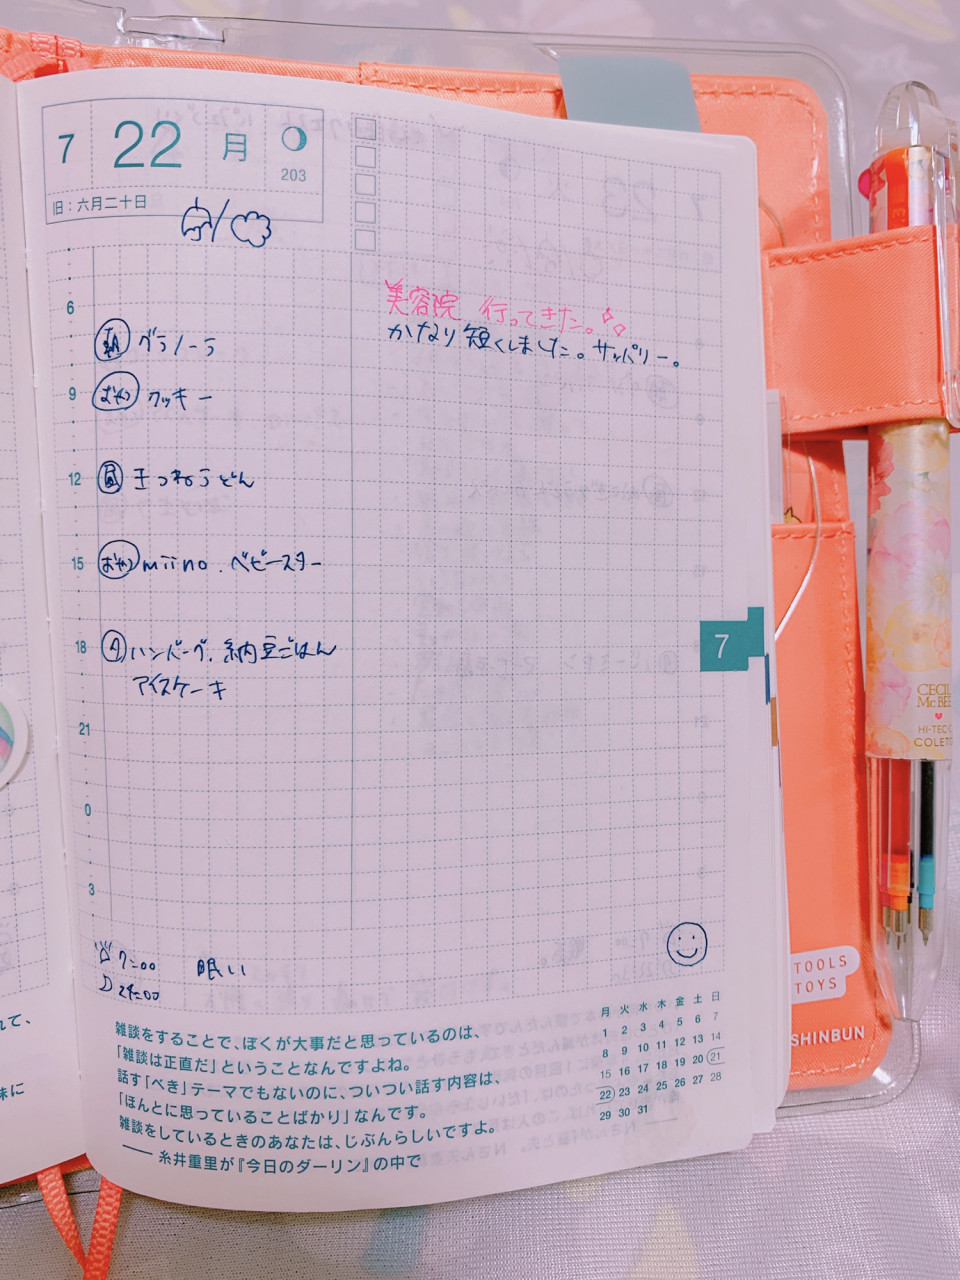 7 22 月
203
旧：六月二十日
美容院 行ってきた。
かなり短くしました。サッパリー。
6
朝 グラノーラ
9
おやつ クッキー
12
昼 きつねうどん
15
おやつ miino、ベビースター
18
夕 ハンバーグ、納豆ごはん
アイスケーキ
7
21
0
3
7:00 眠い
24:00
雑談をすることで、ぼくが大事だと思っているのは、
「雑談は正直だ」ということなんですよね。
話す「べき」テーマでもないのに、ついつい話す内容は、
「ほんとに思っていることばかり」なんです。
雑談をしているときのあなたは、じぶんらしいですよ。
——糸井重里が『今日のダーリン』の中で
月 火 水 木 金 土 日
1 2 3 4 5 6 7
8 9 10 11 12 13 14
15 16 17 18 19 20 21
22 23 24 25 26 27 28
29 30 31
れて、
味に
TOOLS
TOYS
SHINBUN
CECIL
McBEE
HI-TEC-C
COLETO